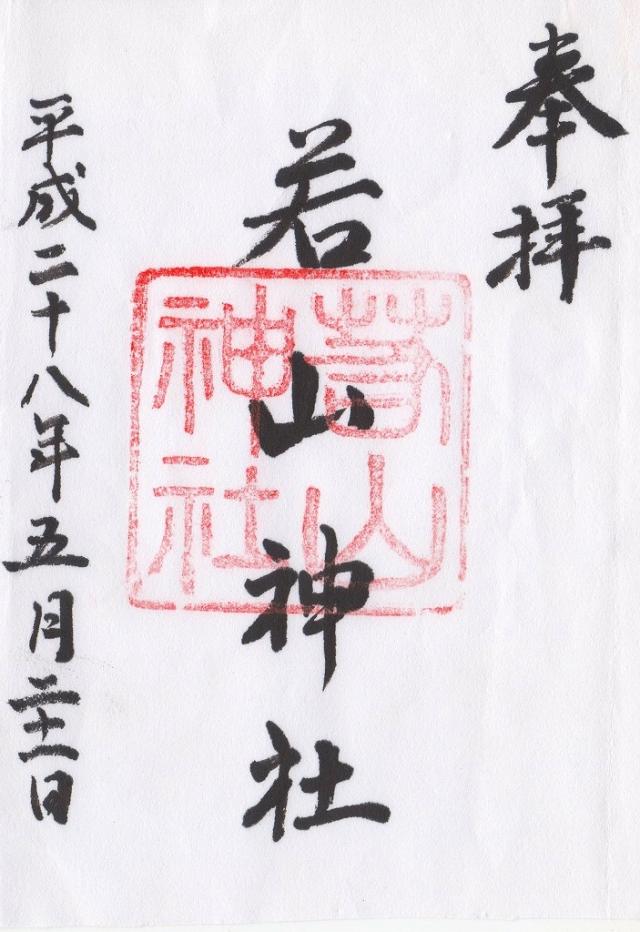 奉拝
若山神社
若山神社
平成二十八年五月二十一日